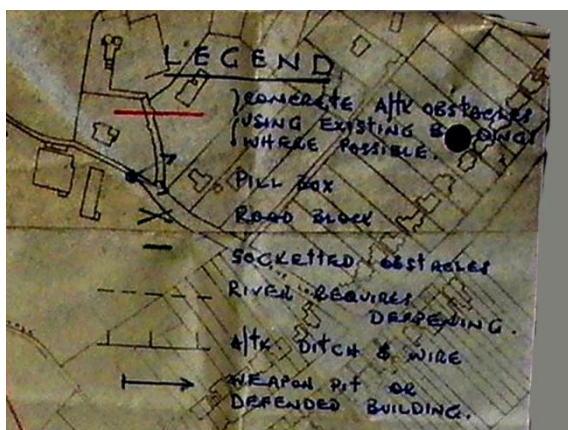 LEGEND
CONCRETE A/TK OBSTACLES
USING EXISTING
WHERE POSSIBLE.
PILL BOX
ROAD BLOCK
SOCKETTED OBSTACLES
RIVER REQUIRES
DEEPENING.
A/TK DITCH & WIRE
WEAPON PIT OR
DEFENDED BUILDING.